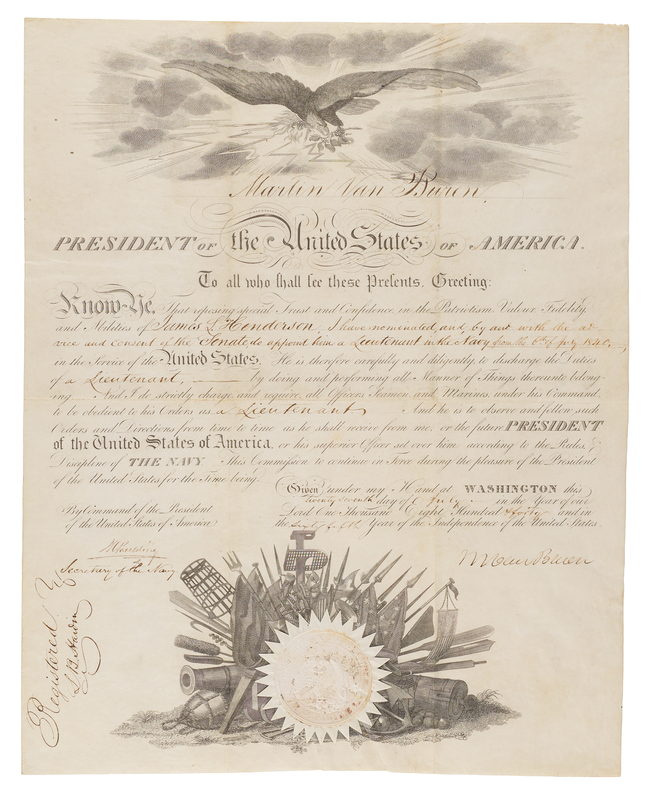 Martin Van Buren,
PRESIDENT OF the United States OF AMERICA.
To all who shall see these Presents. Greeting:
Know Ye, That reposing special Trust and Confidence in the Patriotism, Valour, Fidelity,
and Abilities of James L Henderson, I have nominated, and, by and with the ad-
vice and consent of the Senate, do appoint him a Lieutenant in the Navy from the 6th of July 1840,
in the Service of the United States. He is therefore carefully and diligently to discharge the Duties
of a Lieutenant, by doing and performing all Manner of Things thereunto belong-
ing. And I do strictly charge and require all Officers Seamen and Marines under his Command
to be obedient to his Orders as a Lieutenant And he is to observe and follow such
Orders and Directions from time to time as he shall receive from me, or the future PRESIDENT
of the United States of America, or his superior Officer set over him according to the Rules &
Discipline of THE NAVY. This Commission to continue in Force during the pleasure of the President
of the United States for the Time being.
Given under my Hand at WASHINGTON this
day of July in the Year of our
Lord One Thousand Eight Hundred & forty and in
the Sixty fifth Year of the Independence of the United States
By Command of the President
of the United States of America
M Van Buren
J K Paulding
Secretary of the Navy
Registered